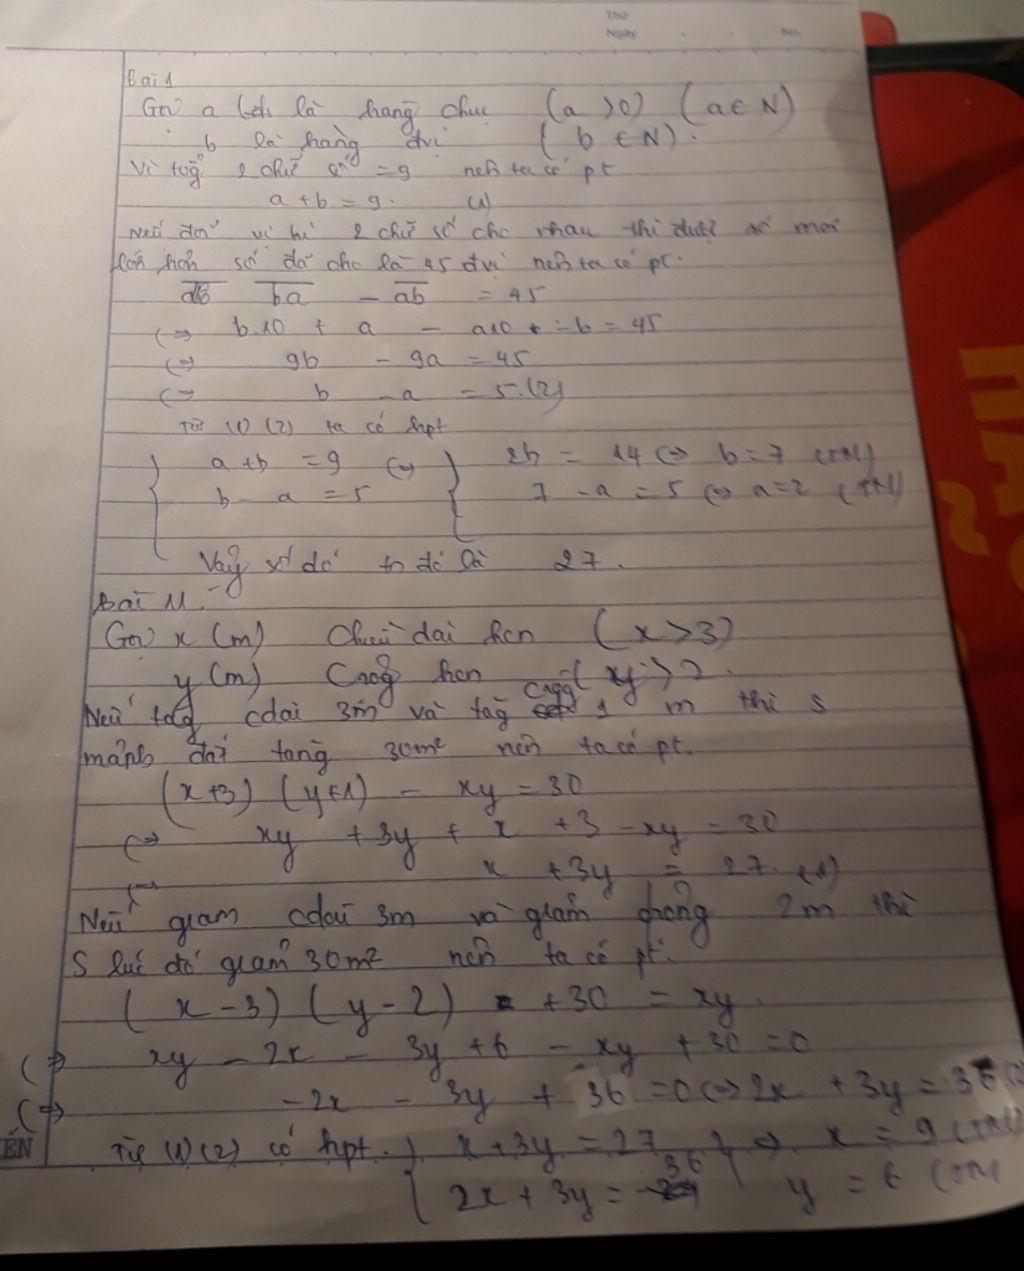 Thứ
Ngày No
Bài 1
Gọi a là hàng chục (a > 0) (a ∈ N)
b là hàng đvị (b ∈ N).
Vì tổg 2 chữ số = 9 nên ta có pt
a + b = 9. (1)
Nếu đổi vị trí 2 chữ số cho nhau thì được số mới
lớn hơn số đã cho là 45 đvị nên ta có pt.
ba - ab = 45
(=) b.10 + a - a10 - b = 45
(=) 9b - 9a = 45
(=) b - a = 5.(2)
Từ (1) (2) ta có hpt
{ a + b = 9 (=) { 2b = 14 (=) b = 7 (TM)
b - a = 5 7 - a = 5 (=) a = 2 (TM)
Vậy số đó là 27.
Bài 11.
Gọi x (m) Chiều dài hcn (x > 3)
y (m) Crộg hcn (y > 2
Nếu tăg cdài 3m và tăg crộg 1 m thì s
mảnh đất tăng 30m² nên ta có pt.
(x+3) (y+1) - xy = 30
(=) xy + 3y + x + 3 - xy = 30
(=) x + 3y = 27. (1)
Nếu giảm cdài 3m và giảm 2m thì
S lúc đó giảm 30m² nên ta có pt.
(x - 3) (y - 2) + 30 = xy
(=) xy - 2x - 3y + 6 - xy + 30 = 0
(=) -2x - 3y + 36 = 0 (=) 2x + 3y = 36 (2)
ẾN Từ (1) (2) có hpt. { x + 3y = 27 } (=) x = 9 (TM)
2x + 3y = 36 y = 6 (TM
HẢ